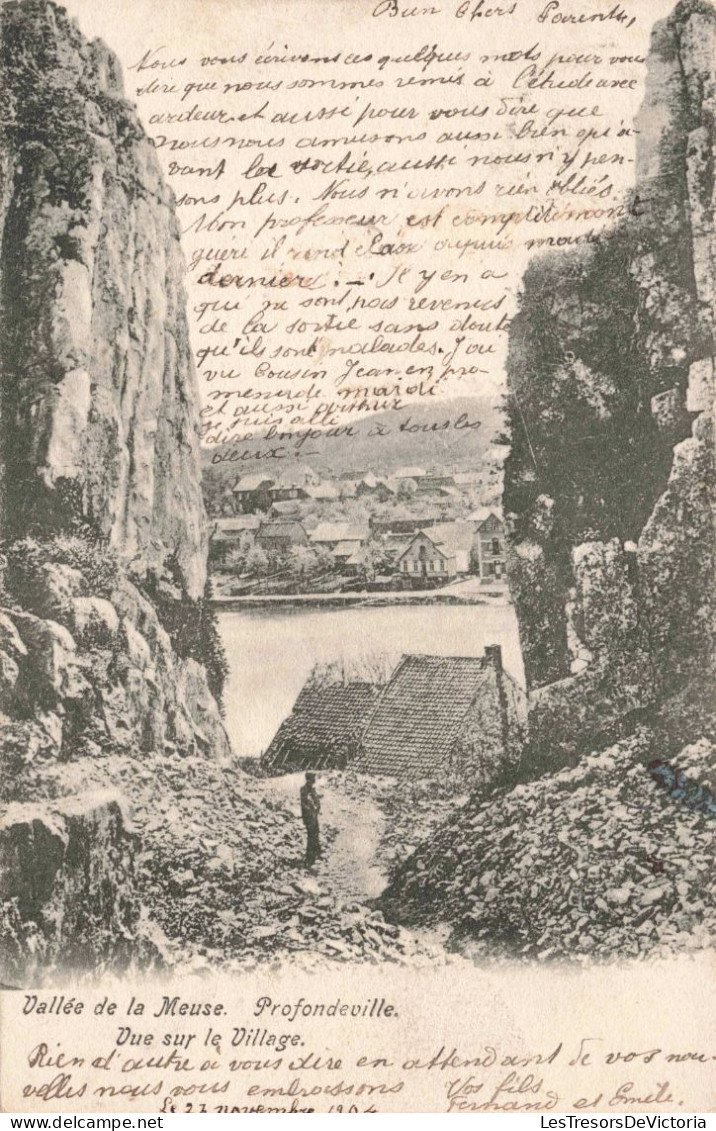 Bien Chers Parents,
Nous vous écrivons ces quelques mots pour vous
dire que nous sommes remis à l'étude avec
ardeur et aussi pour vous dire que
nous nous amusons aussi bien qu'a-
vant la sortie, aussi nous n'y pen-
sons plus. Nous n'avons rien oublié.
Mon professeur est complètement
guéri il rend classe depuis mardi
dernier. — Il y en a
qui ne sont pas revenus
de la sortie sans doute
qu'ils sont malades. J'ai
vu Cousin Jean en pro-
menade mardi
et aussi Arthur
je suis allé
dire bonjour à tous les
deux. —
Vallée de la Meuse. Profondeville.
Vue sur le Village.
Rien d'autre à vous dire en attendant de vos nou-
velles nous vous embrassons Vos fils
Le 27 novembre 1904 Fernand et Emile.
LesTresorsDeVictoria